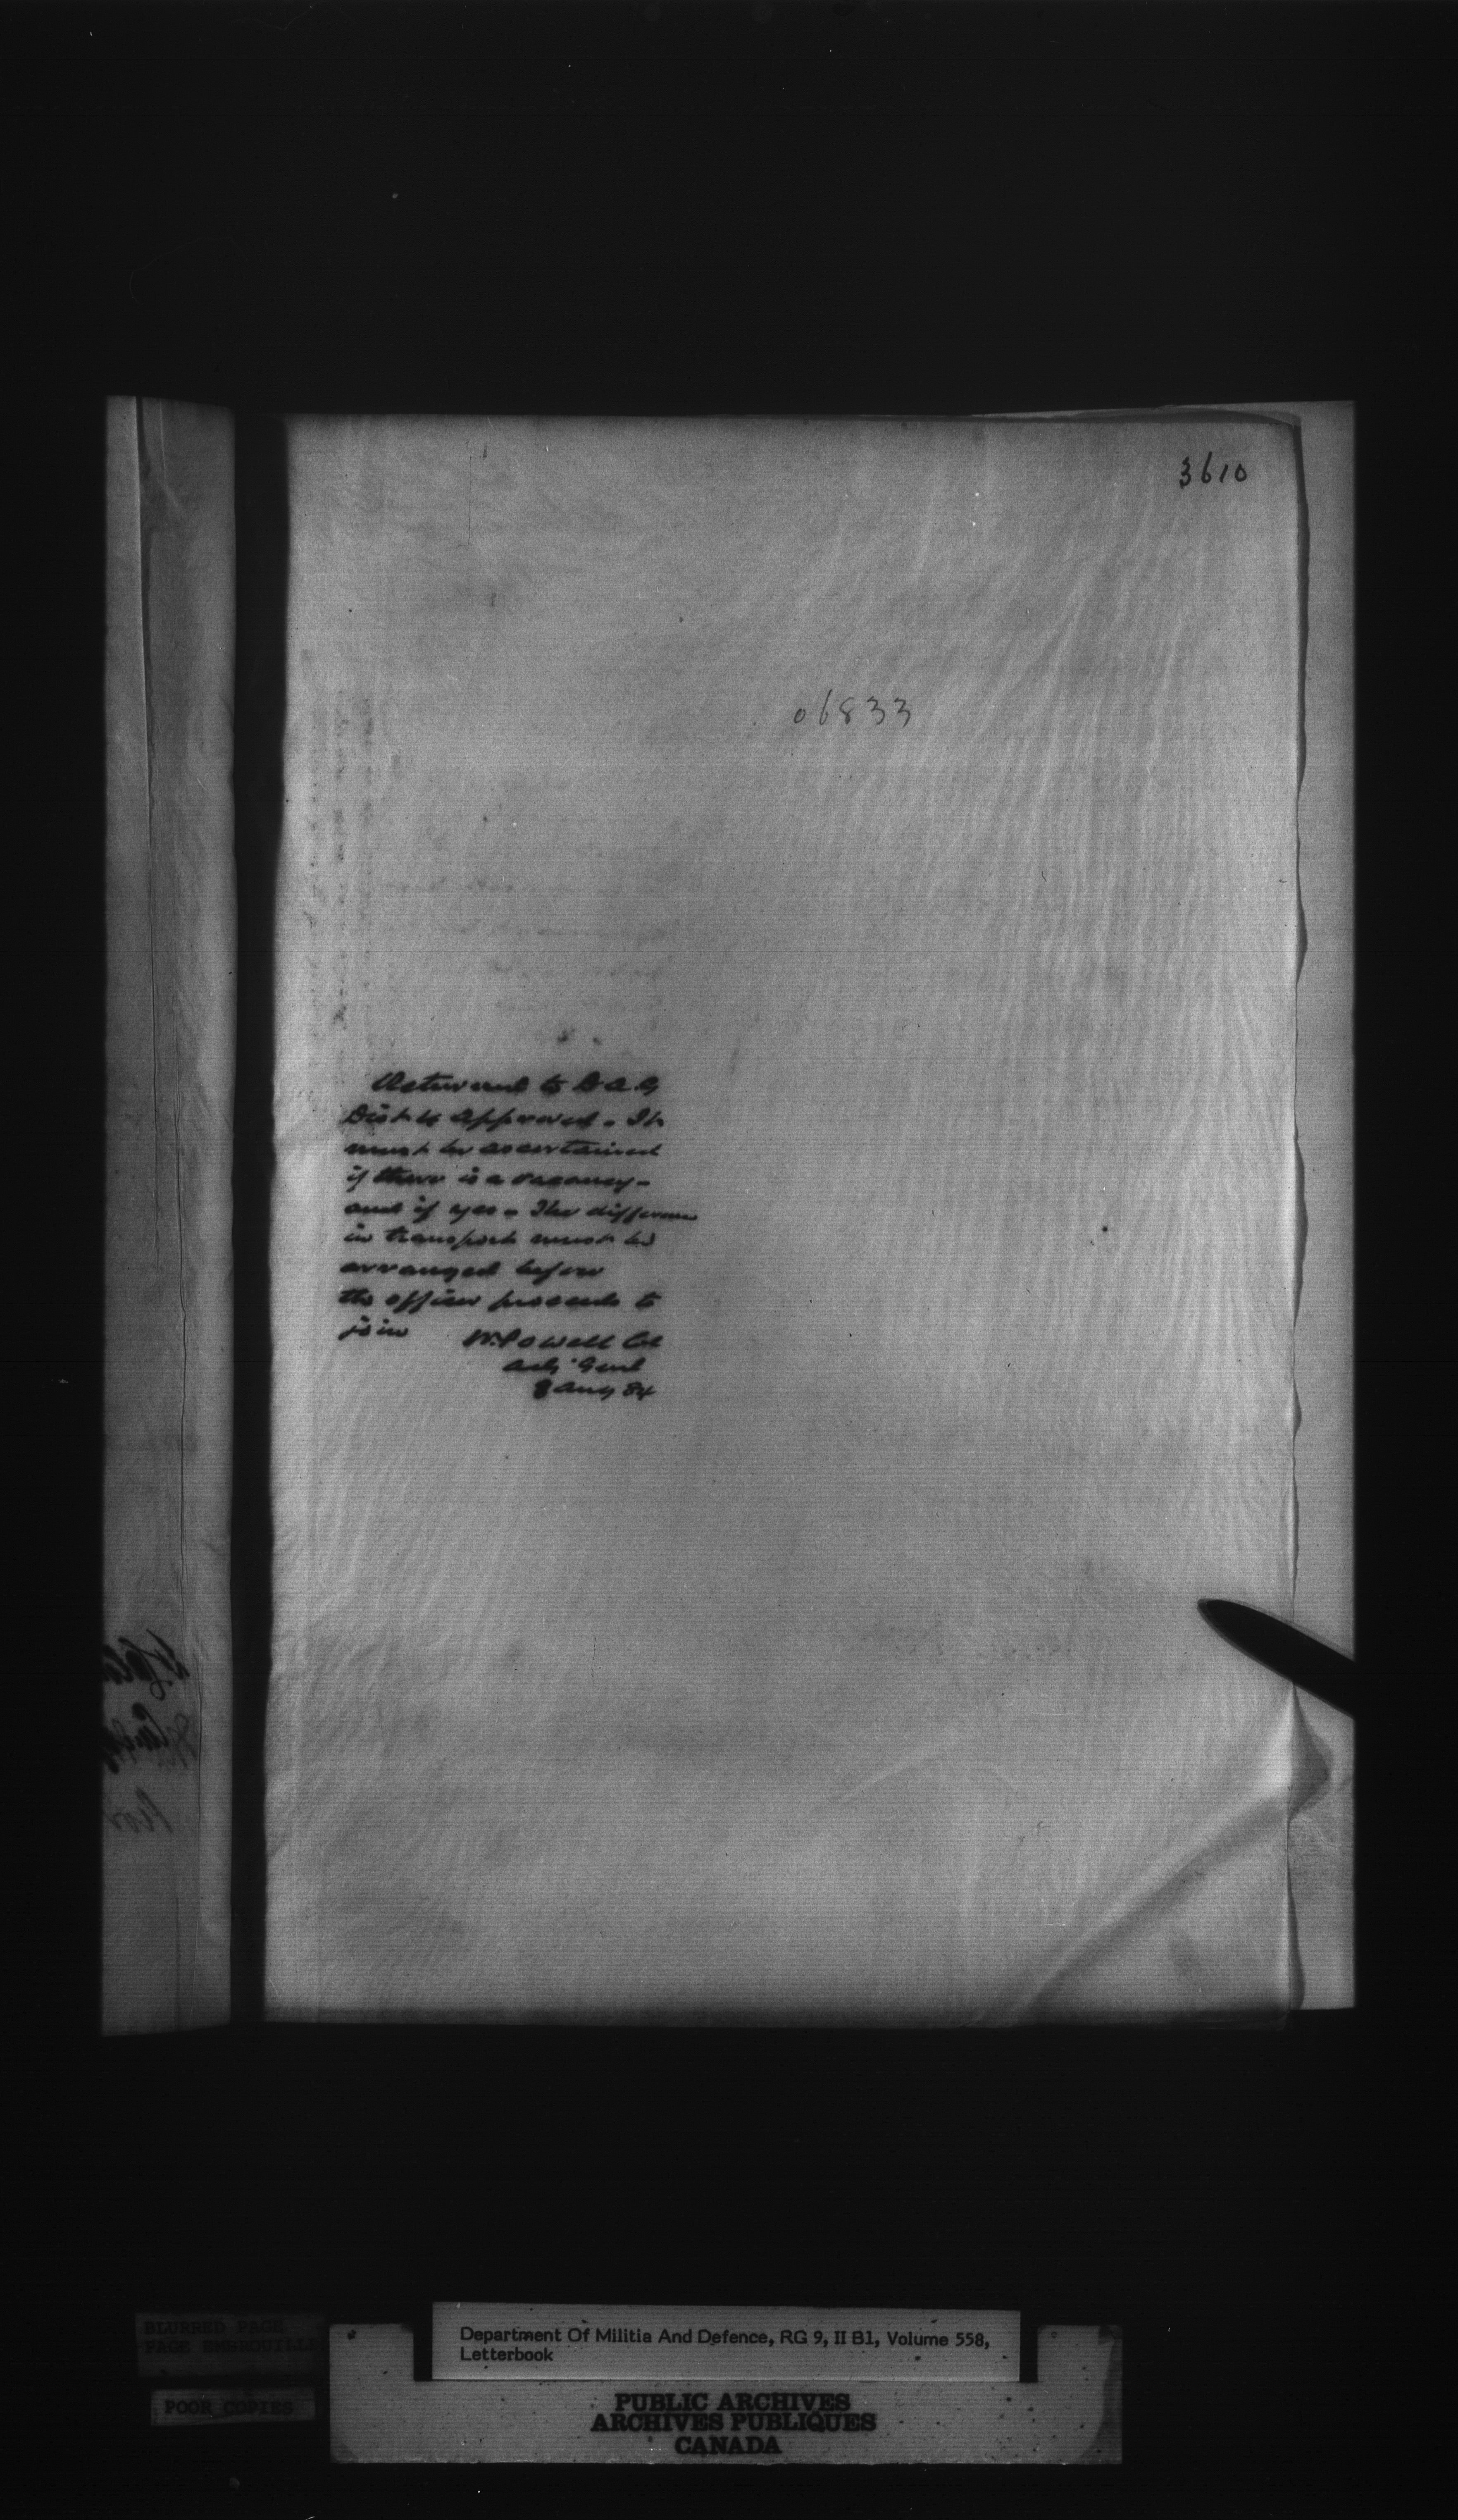 3610
06833
Returned to D.A.G
Dist 4 Approved. It
must be ascertained
if there is a vacancy -
and if yes - The difference
in transport must be
arranged before
the officer proceeds to
join W. Powell Col
Adj Genl
8 Aug 84
BLURRED PAGE
PAGE EMBROUILLE
POOR COPIES
Department Of Militia And Defence, RG 9, II B1, Volume 558,
Letterbook
PUBLIC ARCHIVES
ARCHIVES PUBLIQUES
CANADA